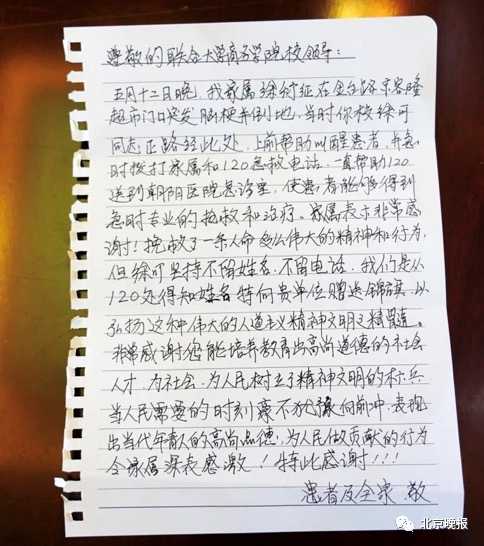 尊敬的联合大学商务学院校领导：
五月十二日晚，我家属徐付征在金台路京客隆
超市门口突发脑梗并倒地，当时你校徐可
同志正路经此处，上前帮助叫醒患者，并急
时拨打家属和120急救电话，一直帮助120
送到朝阳医院急诊室，使患者能够得到
急时专业的抢救和治疗。家属表示非常感
谢！挽救了一条人命多么伟大的精神和行为，
但徐可坚持不留姓名，不留电话，我们是从
120处得知姓名特向贵单位赠送锦旗，以
弘扬这种伟大的人道主义精神文明之精髓。
非常感谢您能培养教育出高尚道德的社会
人才，为社会、为人民树立了精神文明的标兵
当人民需要的时刻豪不犹豫向前冲，表现
出当代年青人的高尚品德，为人民做贡献的行为
令家属深表感激！特此感谢！！！
患者及全家 敬
北京晚报